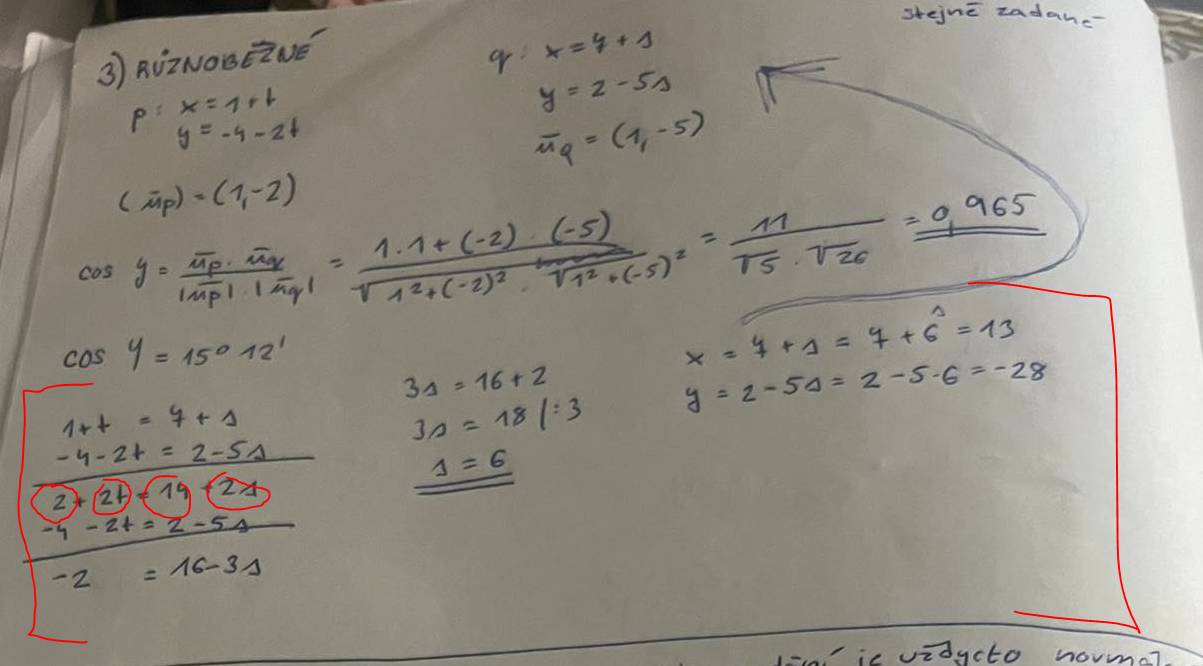 stejně zadané
3) RŮZNOBĚŽNÉ
p: x = 1 + t
y = -4 - 2t
q: x = 7 + s
y = 2 - 5s
ūq = (1, -5)
(ūp) = (1, -2)
cos φ = ūp · ūq / |ūp| · |ūq| = 1 · 1 + (-2) · (-5) / √1² + (-2)² · √1² + (-5)² = 11 / √5 · √26 = 0,965
cos φ = 15° 12'
1 + t = 7 + s
-4 - 2t = 2 - 5s
2 + 2t = 14 + 2s
-4 - 2t = 2 - 5s
-2 = 16 - 3s
3s = 16 + 2
3s = 18 / : 3
s = 6
x = 7 + s = 7 + 6 = 13
y = 2 - 5s = 2 - 5 · 6 = -28
je vždycky